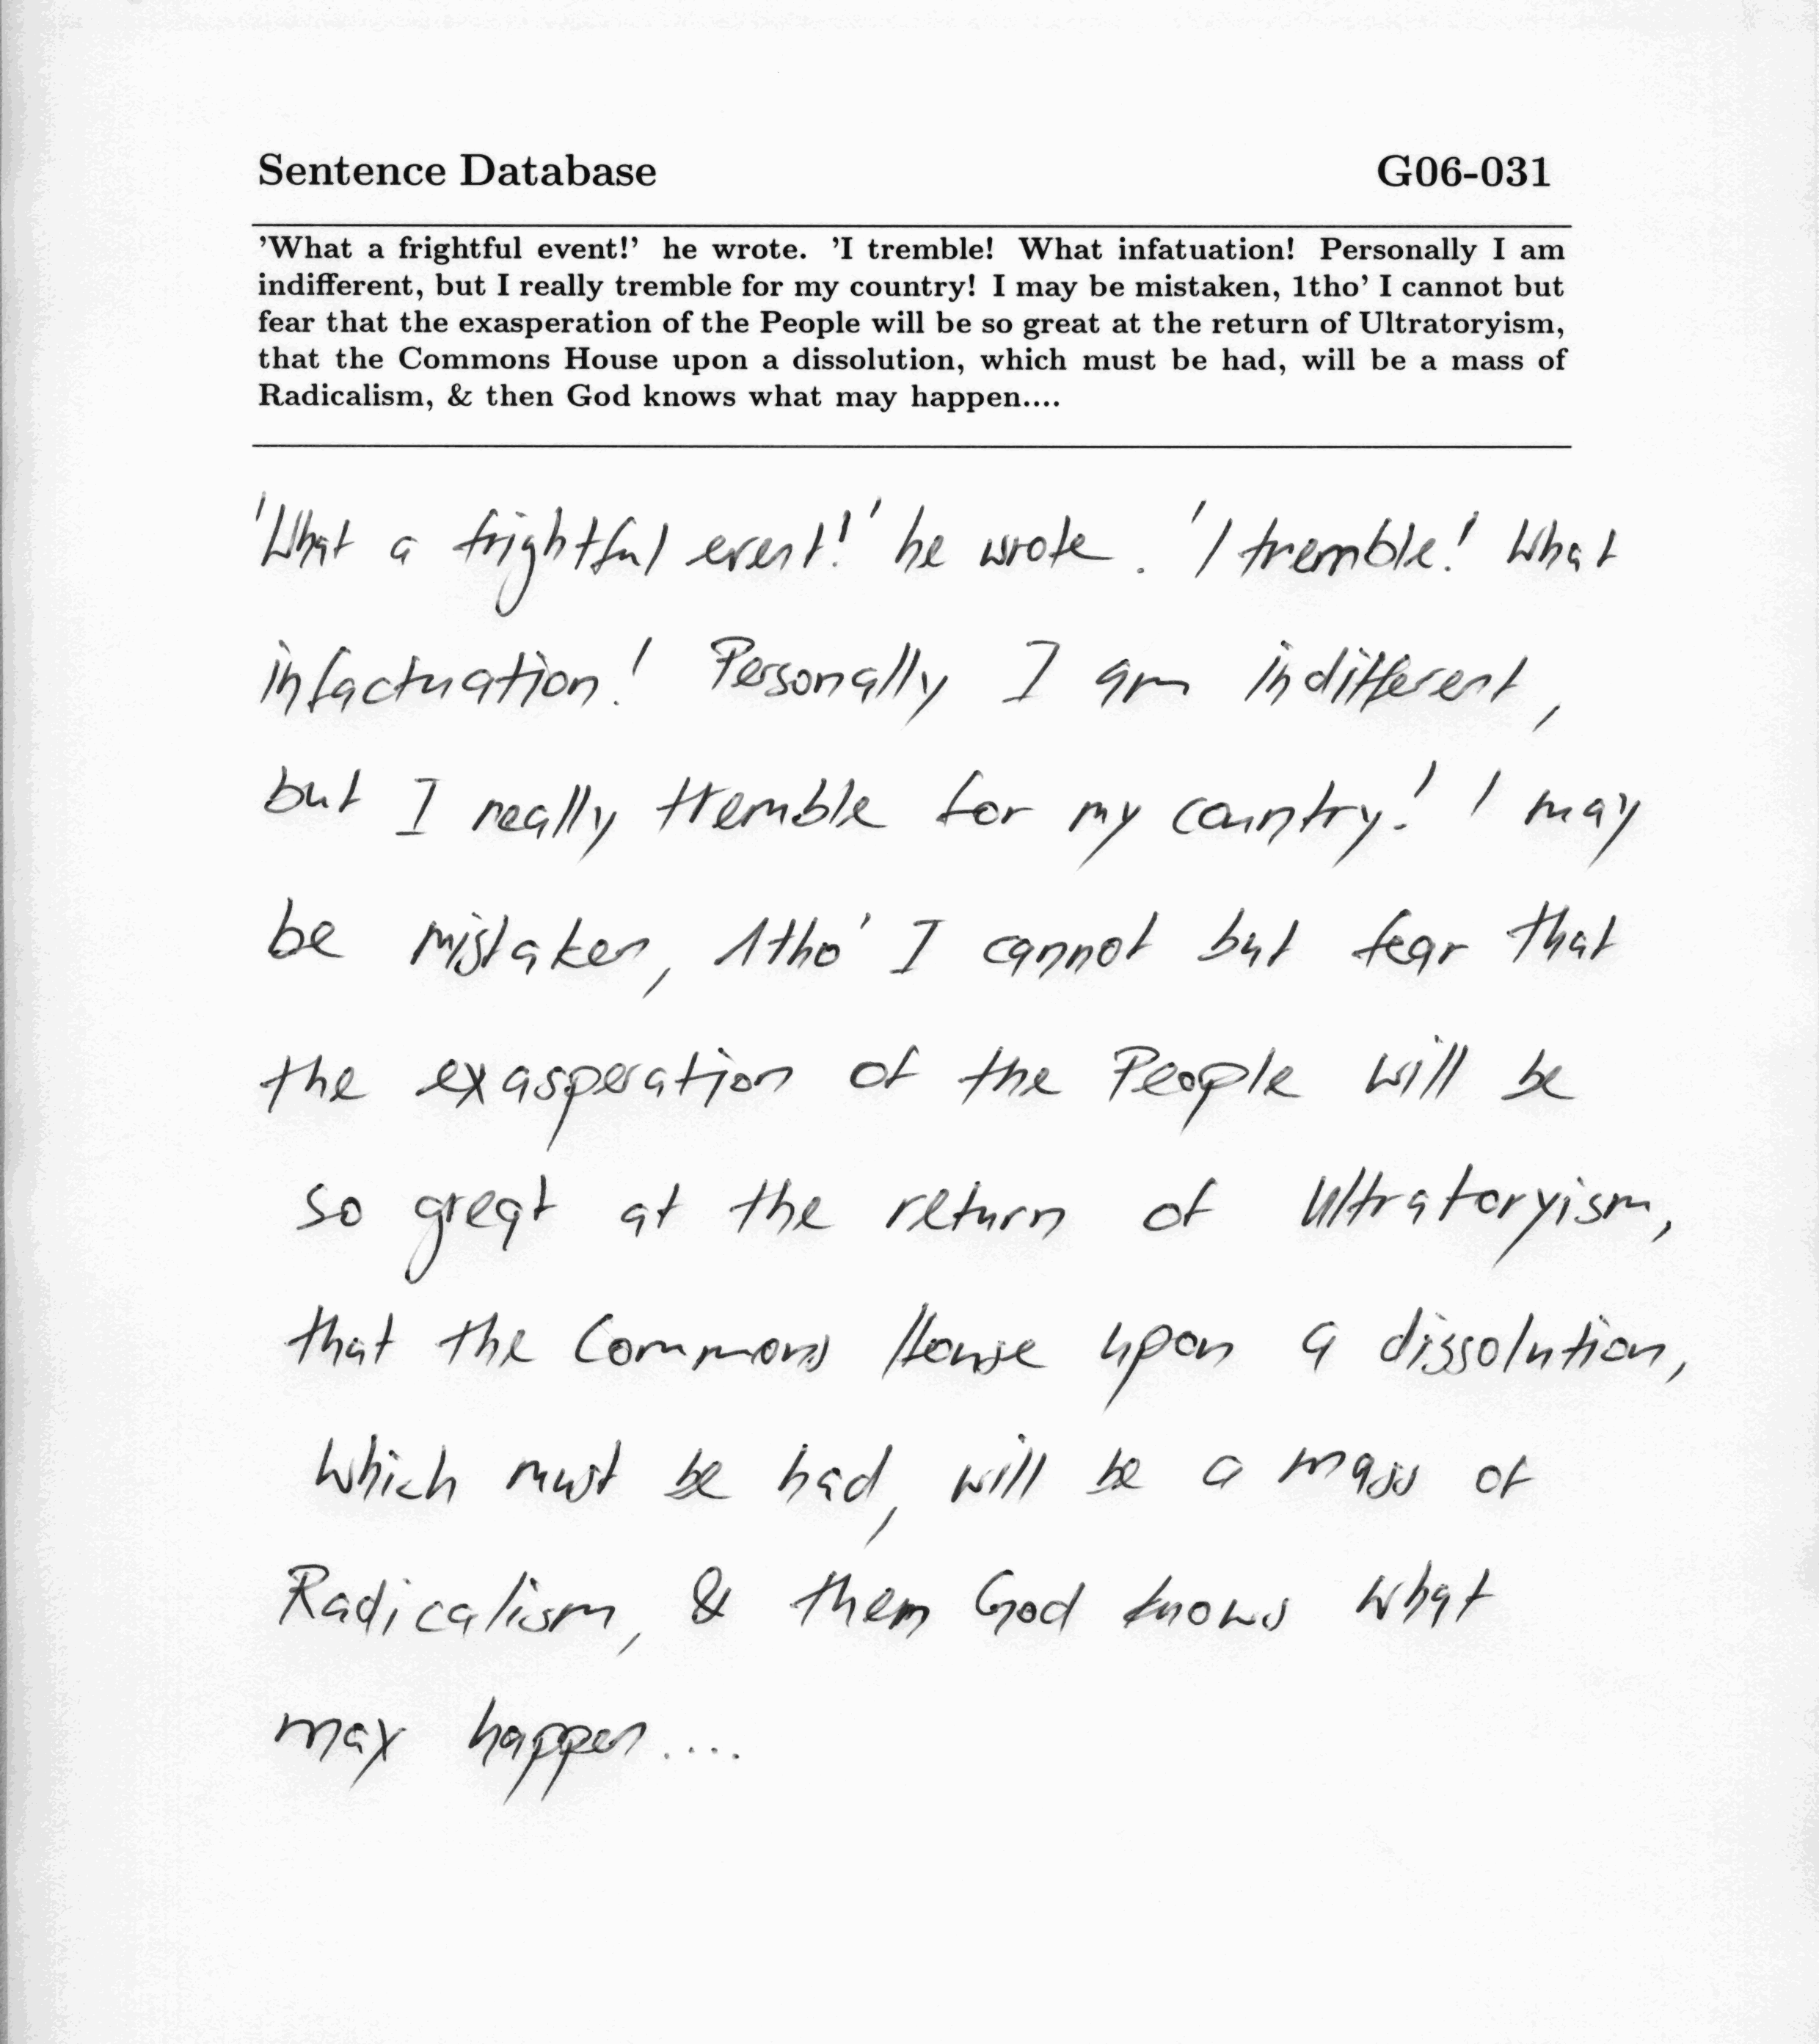 Sentence Database G06-031
'What a frightful event!' he wrote. 'I tremble! What infatuation! Personally I am
indifferent, but I really tremble for my country! I may be mistaken, 1tho' I cannot but
fear that the exasperation of the People will be so great at the return of Ultratoryism,
that the Commons House upon a dissolution, which must be had, will be a mass of
Radicalism, & then God knows what may happen....
'What a frightful event!' he wrote. 'I tremble! What
infactuation! Personally I am indifferent,
but I really tremble for my country! I may
be mistaken, 1tho' I cannot but fear that
the exasperation of the People will be
so great at the return of Ultratoryism,
that the Commons House upon a dissolution,
which must be had, will be a mass of
Radicalism, & them God knows what
may happen....